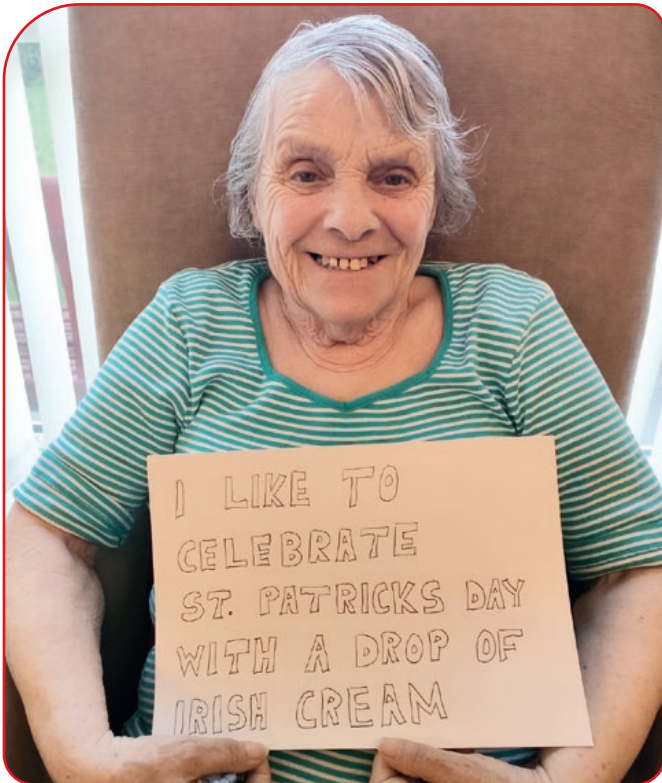 I LIKE TO
CELEBRATE
ST. PATRICKS DAY
WITH A DROP OF
IRISH CREAM